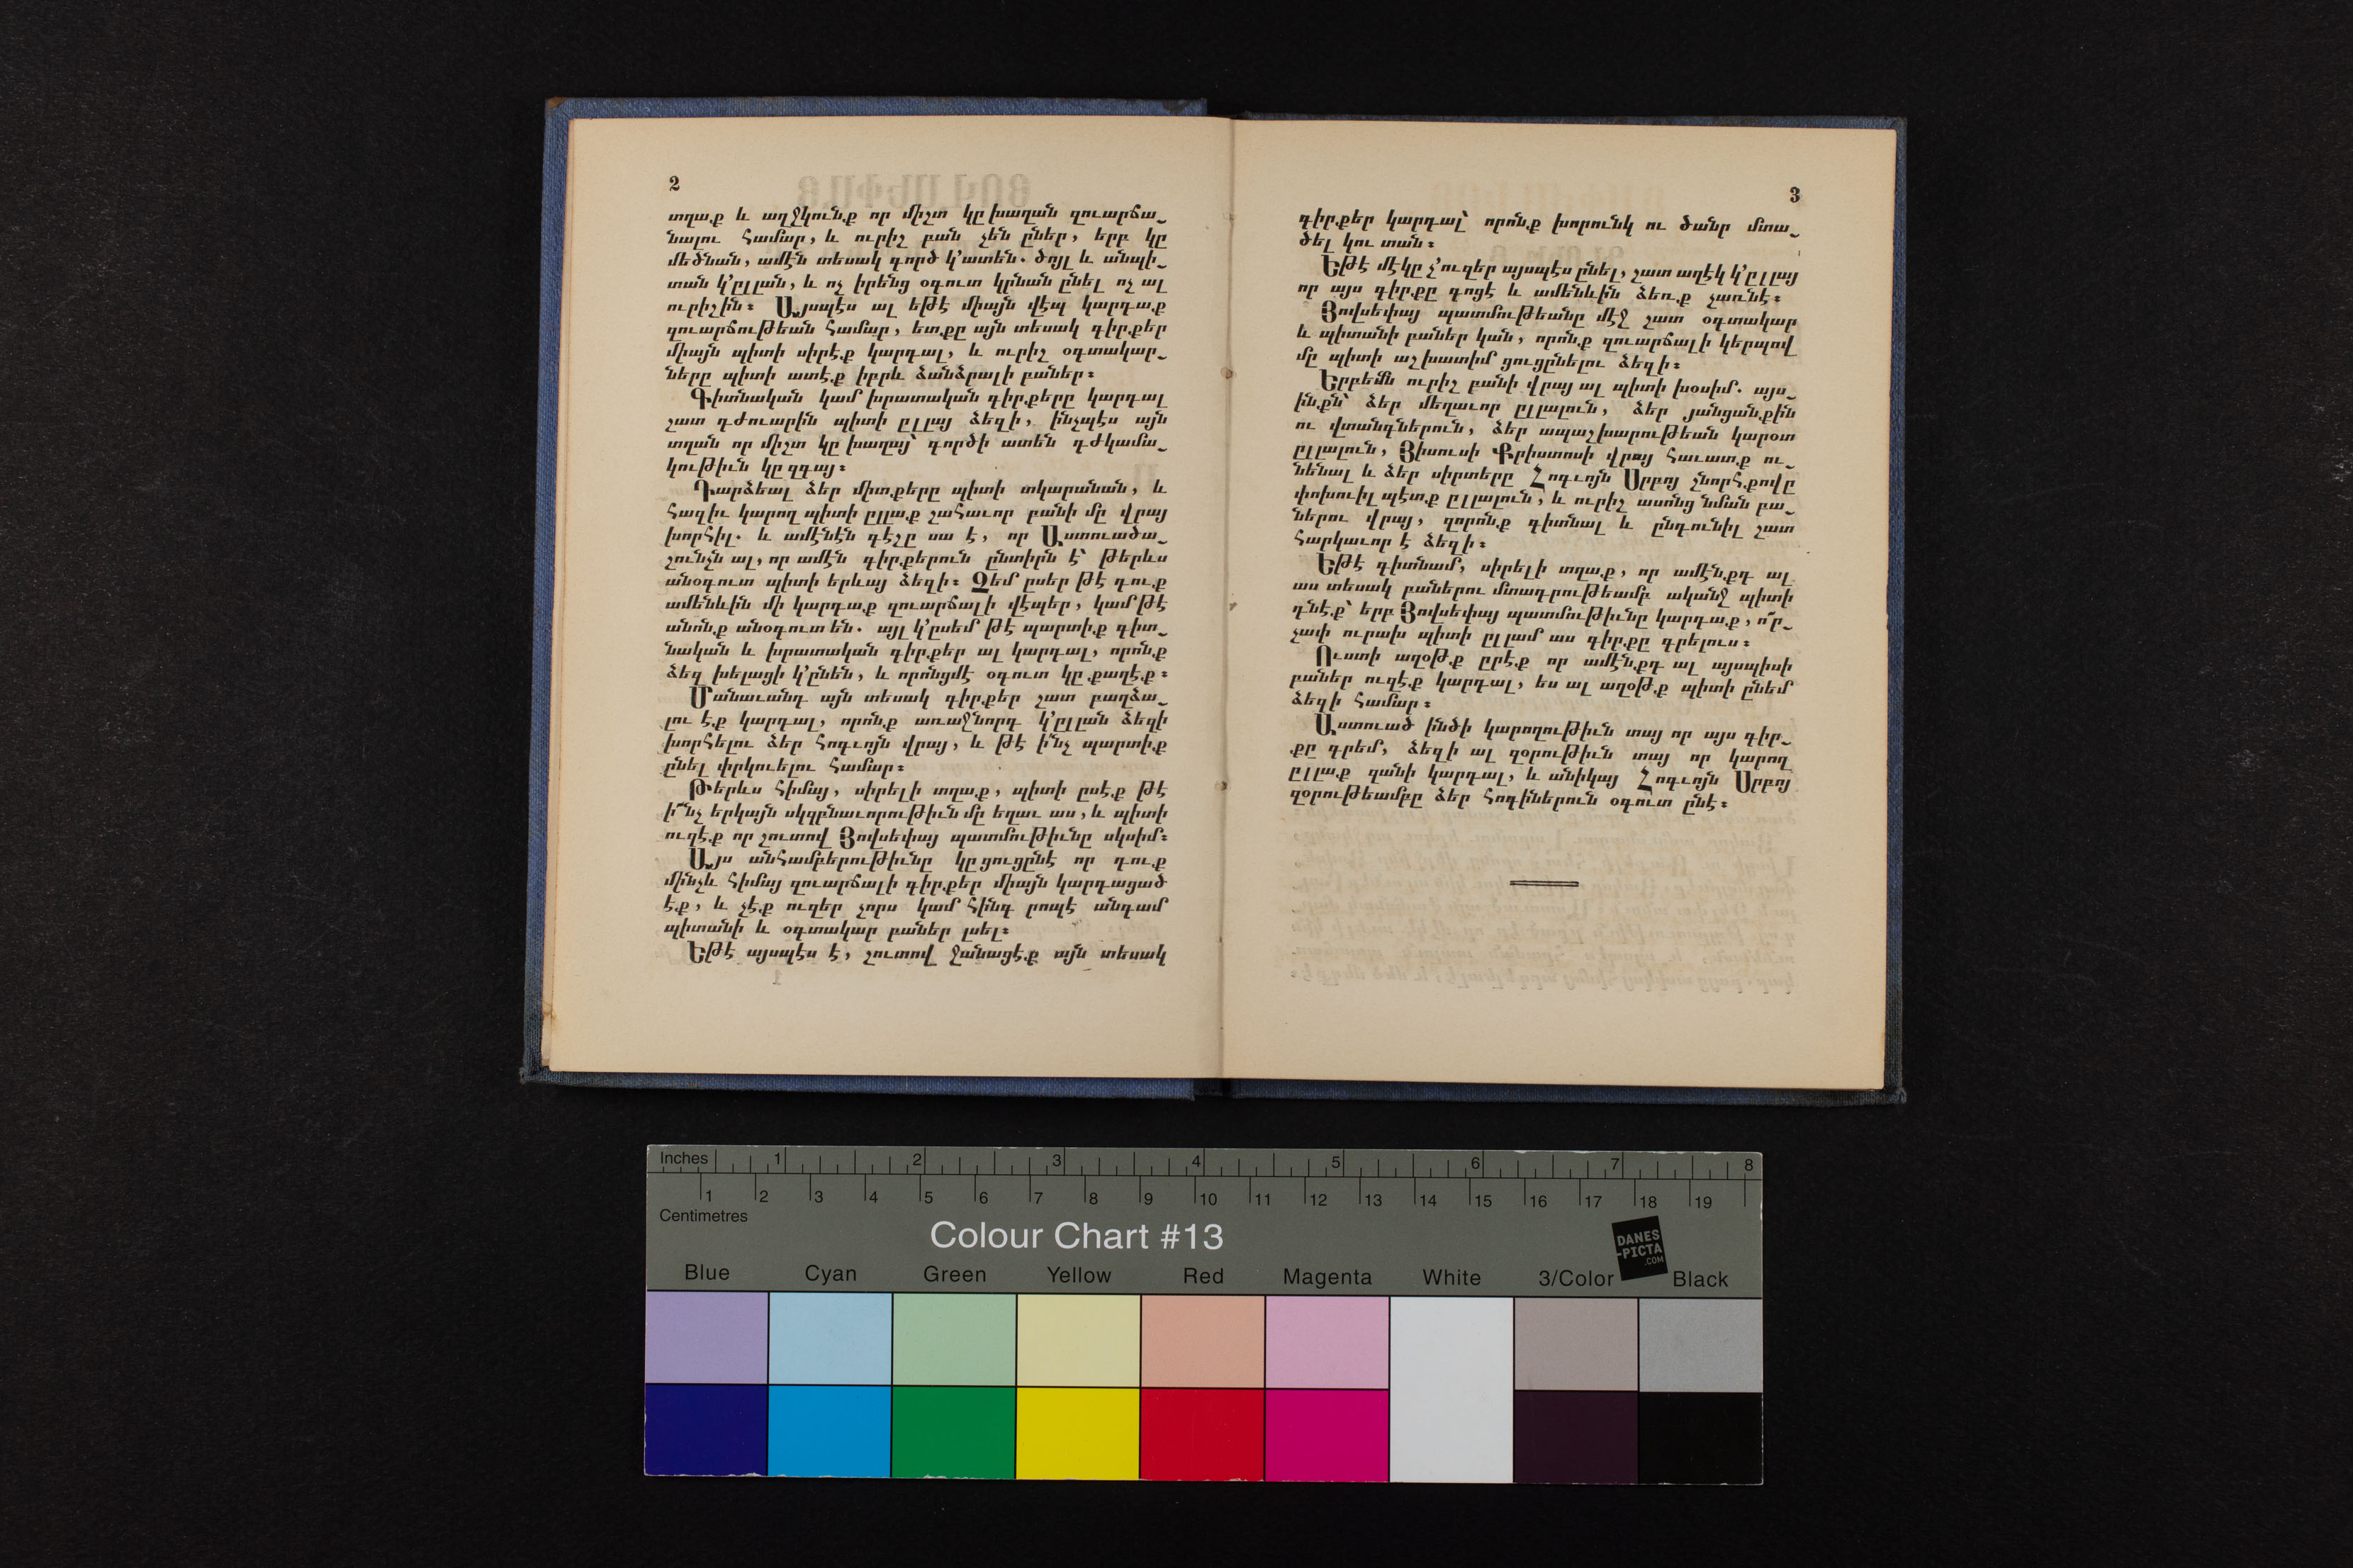 2
տղաք և աղջկունք որ միշտ կը խաղան զուարճա֊
նալու համար, և ուրիշ բան չեն ըներ, երբ կը
մեծնան, ամէն տեսակ գործ կ՚ատեն. ծոյլ և անպի֊
տան կ՚ըլլան, և ոչ իրենց օգուտ կրնան ընել ոչ ալ
ուրիշին։ Այսպէս ալ եթէ միայն վէպ կարդաք
զուարճութեան համար, ետքը այն տեսակ գիրքեր
միայն պիտի սիրէք կարդալ, և ուրիշ օգտակար֊
ները պիտի ատէք իբրև ձանձրալի բաներ։
Գիտնական կամ խրատական գիրքերը կարդալ
շատ դժուարին պիտի ըլլայ ձեզի, ինչպէս այն
տղան որ միշտ կը խաղայ՝ գործի ատեն դժկամա֊
կութիւն կը զգայ։
Դարձեալ ձեր միտքերը պիտի տկարանան, և
հազիւ կարող պիտի ըլլաք շահաւոր բանի մը վրայ
խորհիլ. և ամէնէն գէշը սա է, որ Աստուածա֊
շունչն ալ, որ ամէն գիրքերուն ընտիրն է՝ թերևս
անօգուտ պիտի երևայ ձեզի։ Չեմ ըսեր թէ դուք
ամենևին մի կարդաք զուարճալի վէպեր, կամ թէ
անոնք անօգուտ են. այլ կ՚ըսեմ թէ պարտիք գիտ֊
նական և խրատական գիրքեր ալ կարդալ, որոնք
ձեզ խելացի կ՚ընեն, և որոնցմէ օգուտ կը քաղէք։
Մանաւանդ այն տեսակ գիրքեր շատ բաղձա֊
լու էք կարդալ, որոնք առաջնորդ կ՚ըլլան ձեզի
խորհելու ձեր հոգւոյն վրայ, և թէ ի՛նչ պարտիք
ընել փրկուելու համար։
Թերևս հիմայ, սիրելի տղաք, պիտի ըսէք թէ
ի՜նչ երկայն սկզբնաւորութիւն մը եղաւ աս, և պիտի
ուզէք որ շուտով Յովսեփայ պատմութիւնը սկսիմ։
Այս անհամբերութիւնը կը ցուցընէ որ դուք
մինչև հիմայ զուարճալի գիրքեր միայն կարդացած
էք, և չէք ուզեր չորս կամ հինգ րոպէ անգամ
պիտանի և օգտակար բաներ լսել։
Եթէ այսպէս է, շուտով ջանացէք այն տեսակ
3
գիրքեր կարդալ՝ որոնք խորունկ ու ծանր մտա֊
ծել կու տան։
Եթէ մէկը չ՚ուզեր այսպէս ընել, շատ աղէկ կ՚ըլլայ
որ այս գիրքը գոցէ և ամենևին ձեռք չառնէ։
Յովսեփայ պատմութեանը մէջ շատ օգտակար
և պիտանի բաներ կան, որոնք զուարճալի կերպով
մը պիտի աշխատիմ ցուցընելու ձեզի։
Երբեմն ուրիշ բանի վրայ ալ պիտի խօսիմ. այս֊
ինքն՝ ձեր մեղաւոր ըլլալուն, ձեր յանցանքին
ու վտանգներուն, ձեր ապաշխարութեան կարօտ
ըլլալուն, Յիսուսի Քրիստոսի վրայ հաւատք ու֊
նենալ և ձեր սիրտերը Հոգւոյն Սրբոյ շնորհքովը
փոխուիլ պէտք ըլլալուն, և ուրիշ ասոնց նման բա֊
ներու վրայ, զորոնք գիտնալ և ընդունիլ շատ
հարկաւոր է ձեզի։
Եթէ գիտնամ, սիրելի տղաք, որ ամէնքդ ալ
աս տեսակ բաներու մտադրութեամբ ականջ պիտի
դնէք՝ երբ Յովսեփայ պատմութիւնը կարդաք, ո՜ր֊
չափ ուրախ պիտի ըլլամ աս գիրքը գրելուս։
Ուստի աղօթք ըրէք որ ամէնքդ ալ այսպիսի
բաներ ուզէք կարդալ, ես ալ աղօթք պիտի ընեմ
ձեզի համար։
Աստուած ինծի կարողութիւն տայ որ այս գիր֊
քը գրեմ, ձեզի ալ զօրութիւն տայ որ կարող
ըլլաք զանի կարդալ, և անիկայ Հոգւոյն Սրբոյ
զօրութեամբը ձեր հոգիներուն օգուտ ընէ։
Inches 1 2 3 4 5 6 7 8
1 2 3 4 5 6 7 8 9 10 11 12 13 14 15 16 17 18 19
Centimetres
Colour Chart #13
DANES
-PICTA
.COM
Blue Cyan Green Yellow Red Magenta White 3/Color Black